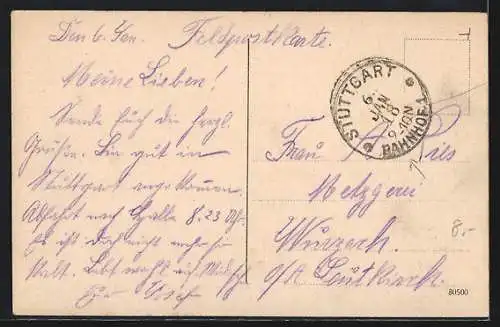 Den 6. Jan. Feldpostkarte.
Meine Lieben!
Sende Euch die herzl.
Grüße. Bin gut in
Stuttgart angekommen.
Abfahrt nach Halle 8.23 Uhr.
Es ist doch nicht mehr so
kalt. Lebt wohl auf Wiedersehn
Euer Josef
STUTTGART
6 JAN 18
9-10N
BAHNHOF 1
Frau Ries
Metzgerei
Wurzach.
O/A Leutkirch.
8.-
80500